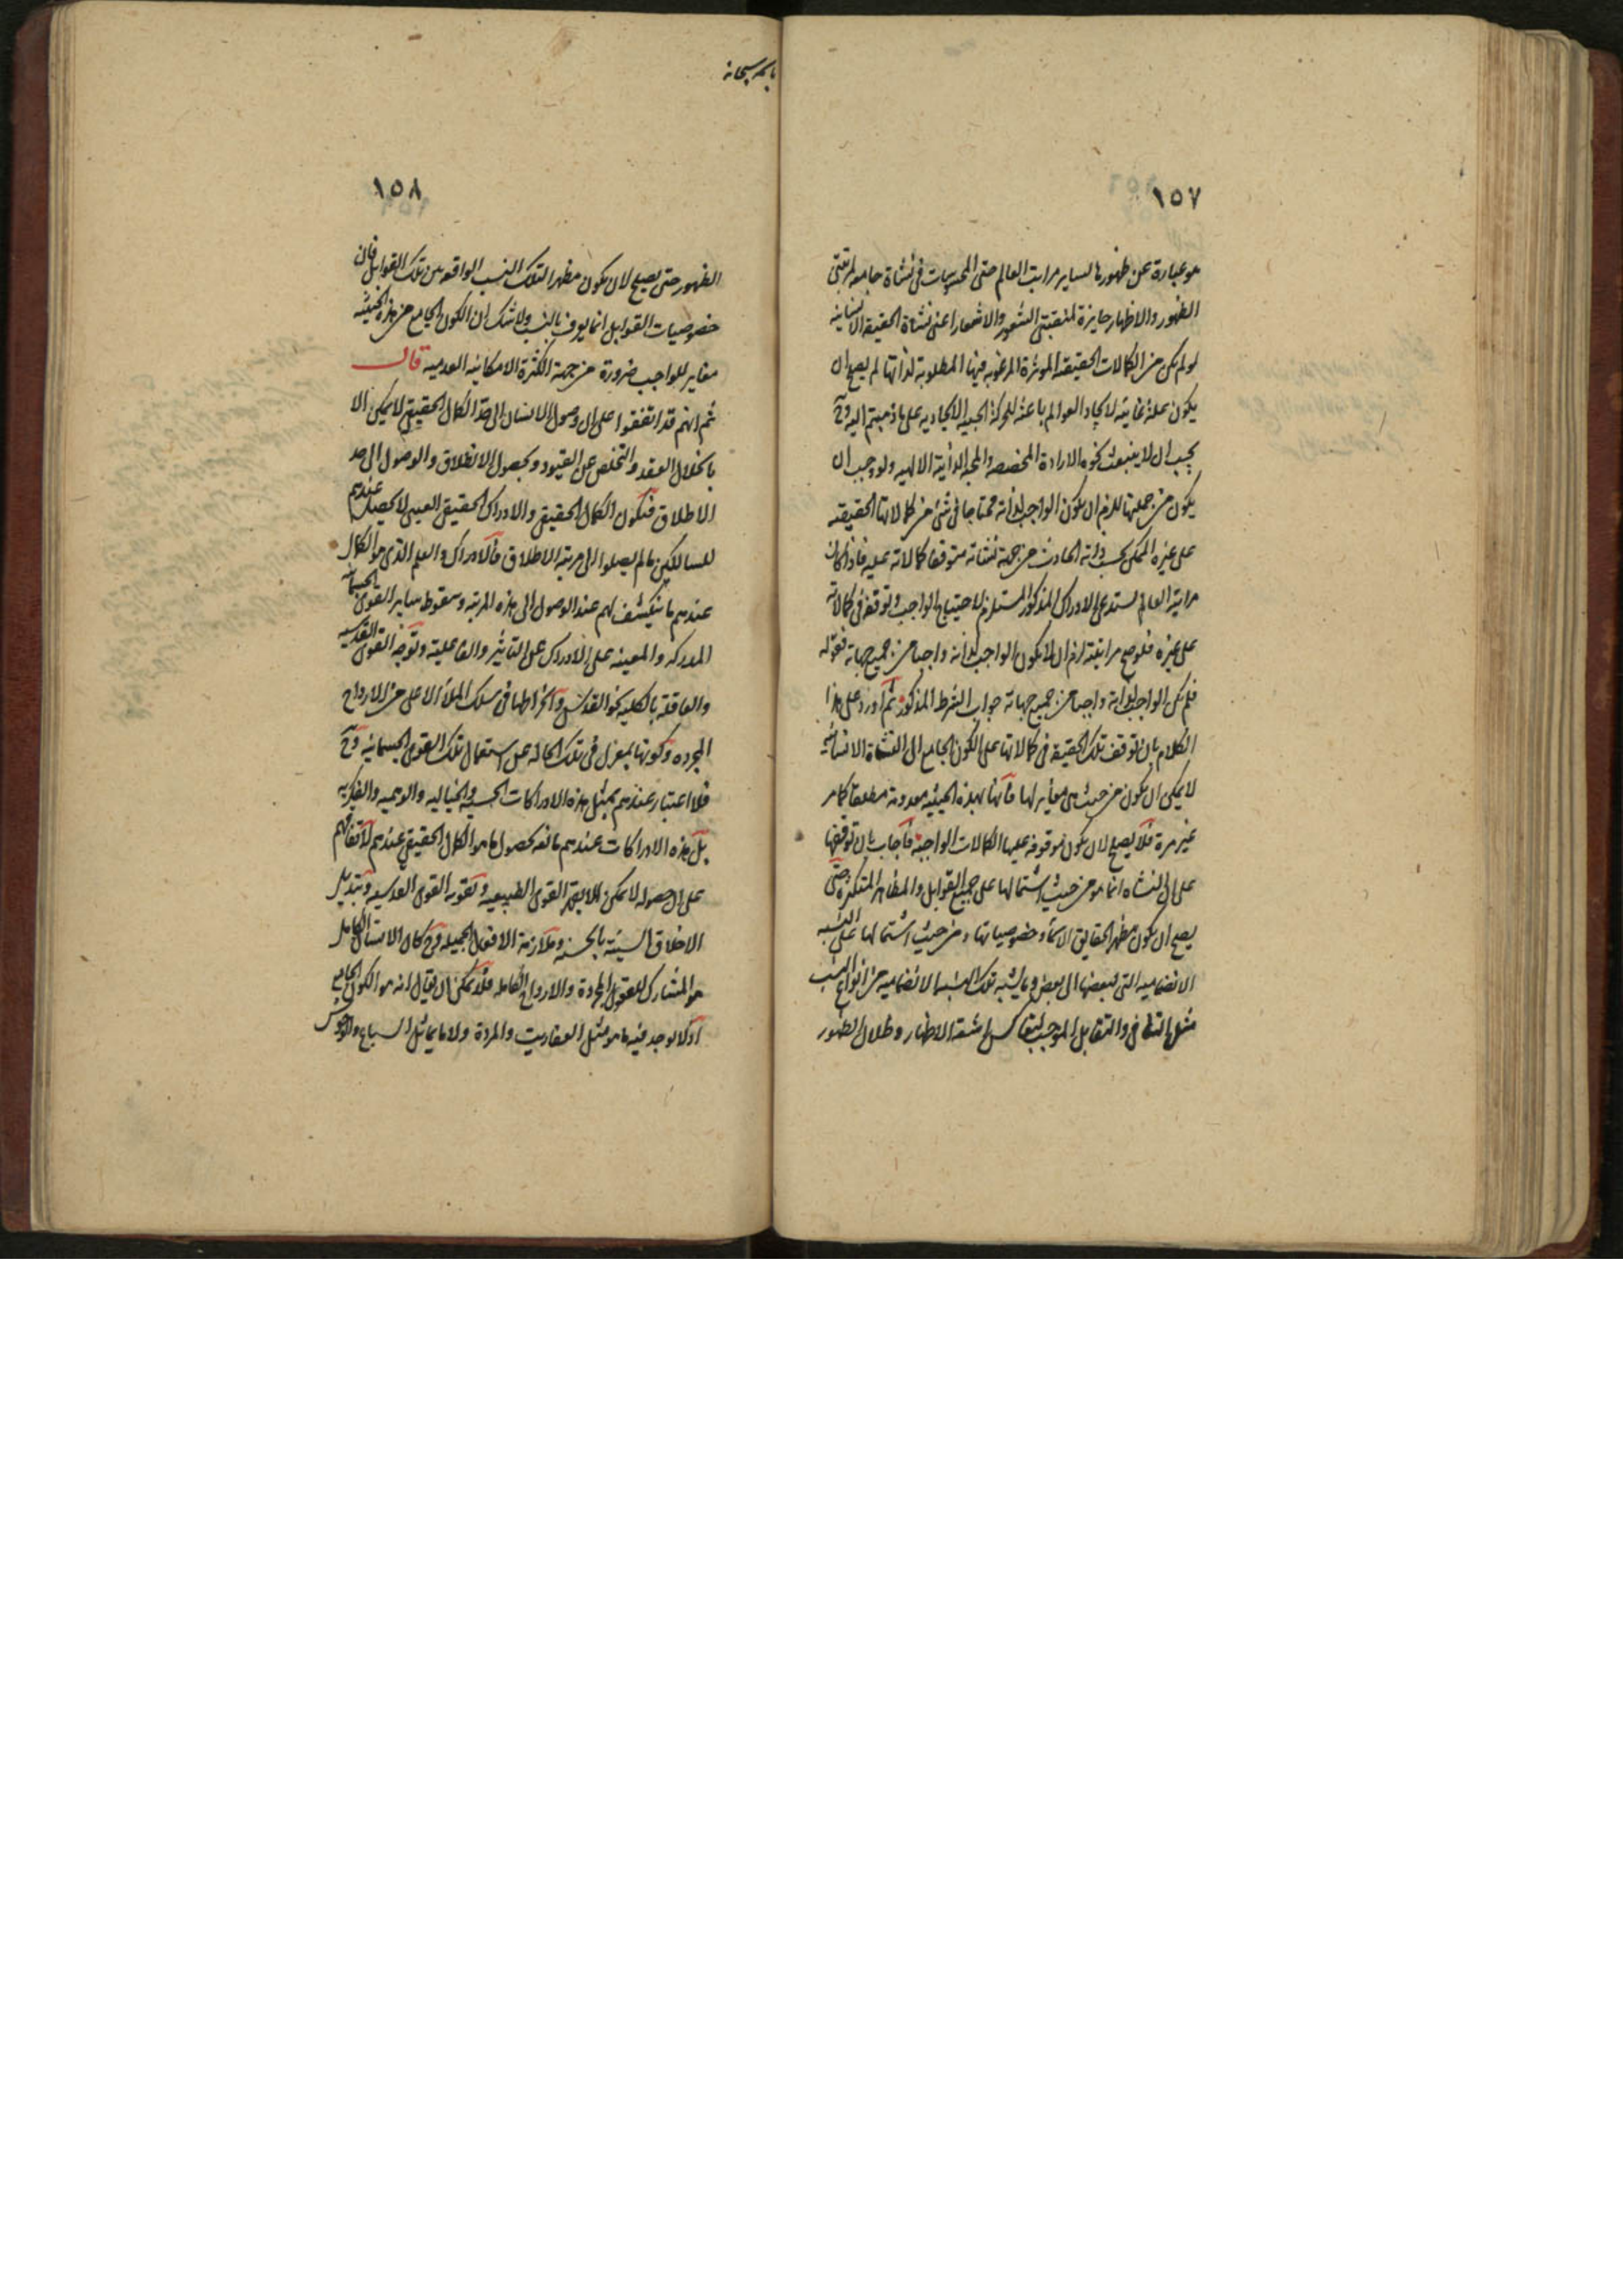 ١٥٧
هو عبارة عن ظهورها لساير مراتب العالم حتى المحسوسات فى نشأة جامعة لمرتبتى
الظهور والاظهار حايزة لمنقبتى الشعور والاشعار اعنى نشأة الحقيقة الانسانية
لو لم يكن من الكمالات الحقيقة الموثرة المرغوبه فيها المطلوبة لذاتها لم يصح ان
يكون علة غائية لايجاد العوالم باعثه للحركة الحبيه الايجاديه على ما ذهبتم اليه وح
يجب ان لا ينبعث نحوه الارادة المخصصه والمحبة الذاتية الالهيه ولو وجب ان
يكون من جملتها للزم ان يكون الواجب لذاته محتاجا فى شئ من كمالاتها الحقيقه
على غيره الممكن بحسب ذاته الحادث من جهة نشاته متوقفا كمالاته عليه فاذا كان
مراتبة العالم تستدعى الادراك المذكور المستلزم لاحتياج الواجب وتوقفه فى كمالاته
على غيره فلو صح مراتبته لزم ان لا يكون الواجب لذاته واجبا من جميع جهاته فقوله
فلم يكن الواجب لذاته واجبا من جميع جهاته جواب الشرط المذكور ثم اورد على هذا
الكلام بان توقف تلك الحقيقة فى كمالاتها على الكون الجامع الى النشاة الانسانية
لا يمكن ان يكون من حيث هى مغاير لها فانها بهذه الحيثيه معدومة مطلقا كما مر
غير مرة فلا يصح لان يكون موقوفه عليها الكمالات الواجبة فاجاب بان توقفها
على النشاه انما هو من حيث اشتمالها على جميع القوابل والمظاهر المتكثره حتى
يصح ان يكون مظهر الحقايق الاسماء وخصوصياتها ومن حيث اشتمالها على النسبه
الانضماميه التى لبعضها الى بعض وما يشبه تلك النسب الانضماميه من انواع النسب
مثل التنافى والتقابل الموجب لتعاكس اشعة الاظهار وظلال الظهور
باسمه سبحانه
١٥٨
الظهور حتى يصح لان يكون مظهرا لتلك النسب الواقعه بين تلك القوابل فان
خصوصيات القوابل انما يعرف بالنسب ولا شك ان الكون الجامع من هذه الحيثية
مغاير للواجب ضرورة من جهة الكثرة الامكانيه العدميه قال
ثم انهم قد اتفقوا على ان وصول الانسان الى هذا الكمال الحقيقى لا يمكن الا
بانحلال العقد والتخلص عن القيود وبحصول الانطلاق والوصول الى حد
الاطلاق فيكون الكمال الحقيقى والادراك الحقيقى العينى لا يحصل عندهم
للسالكين ما لم يصلوا الى مرتبة الاطلاق فالادراك والعلم الذى هو الكمال
عندهم ما ينكشف لهم عند الوصول الى هذه المرتبه وسقوط ساير القوى الجسمانية
المدركه والمعينه على الادراك عن التاثير والفاعلية وتوجه القوى القدسيه
والعاقلة بالكليه نحو القدس وانخراطها فى سلك الملأ الاعلى من الارواح
المجرده وكونها بمعزل فى تلك الحاله عن استعمال تلك القوى الجسمانيه وح
فلا اعتبار عندهم بمثل هذه الادراكات الحسيه والخياليه والوهميه والفكريه
بل هذه الادراكات عندهم مانعه لحصول ما هو الكمال الحقيقى عندهم لاتفاقهم
على ان حصوله لا يمكن الا بقهر القوى الطبيعيه وتقويه القوى القدسيه وتبديل
الاخلاق السيئة بالحسنه وملازمة الافعال الجميله وح كان الانسان الكامل
هو المشارك للعقول المجردة والارواح الكامله فلا يمكن ان يقال انه هو الكون الجامع
اذ لا يوجد فيه ما هو مثل العفاريت والمردة ولا ما يماثل السباع والوحوش